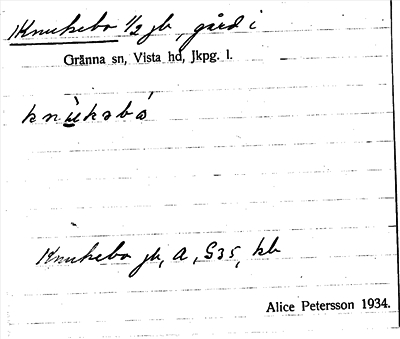 Knukebo 1/2 jb, gård i
Gränna sn, Vista hd, Jkpg. l.
knùkəbó
Knukebo jb, A, S35, kb
Alice Petersson 1934.